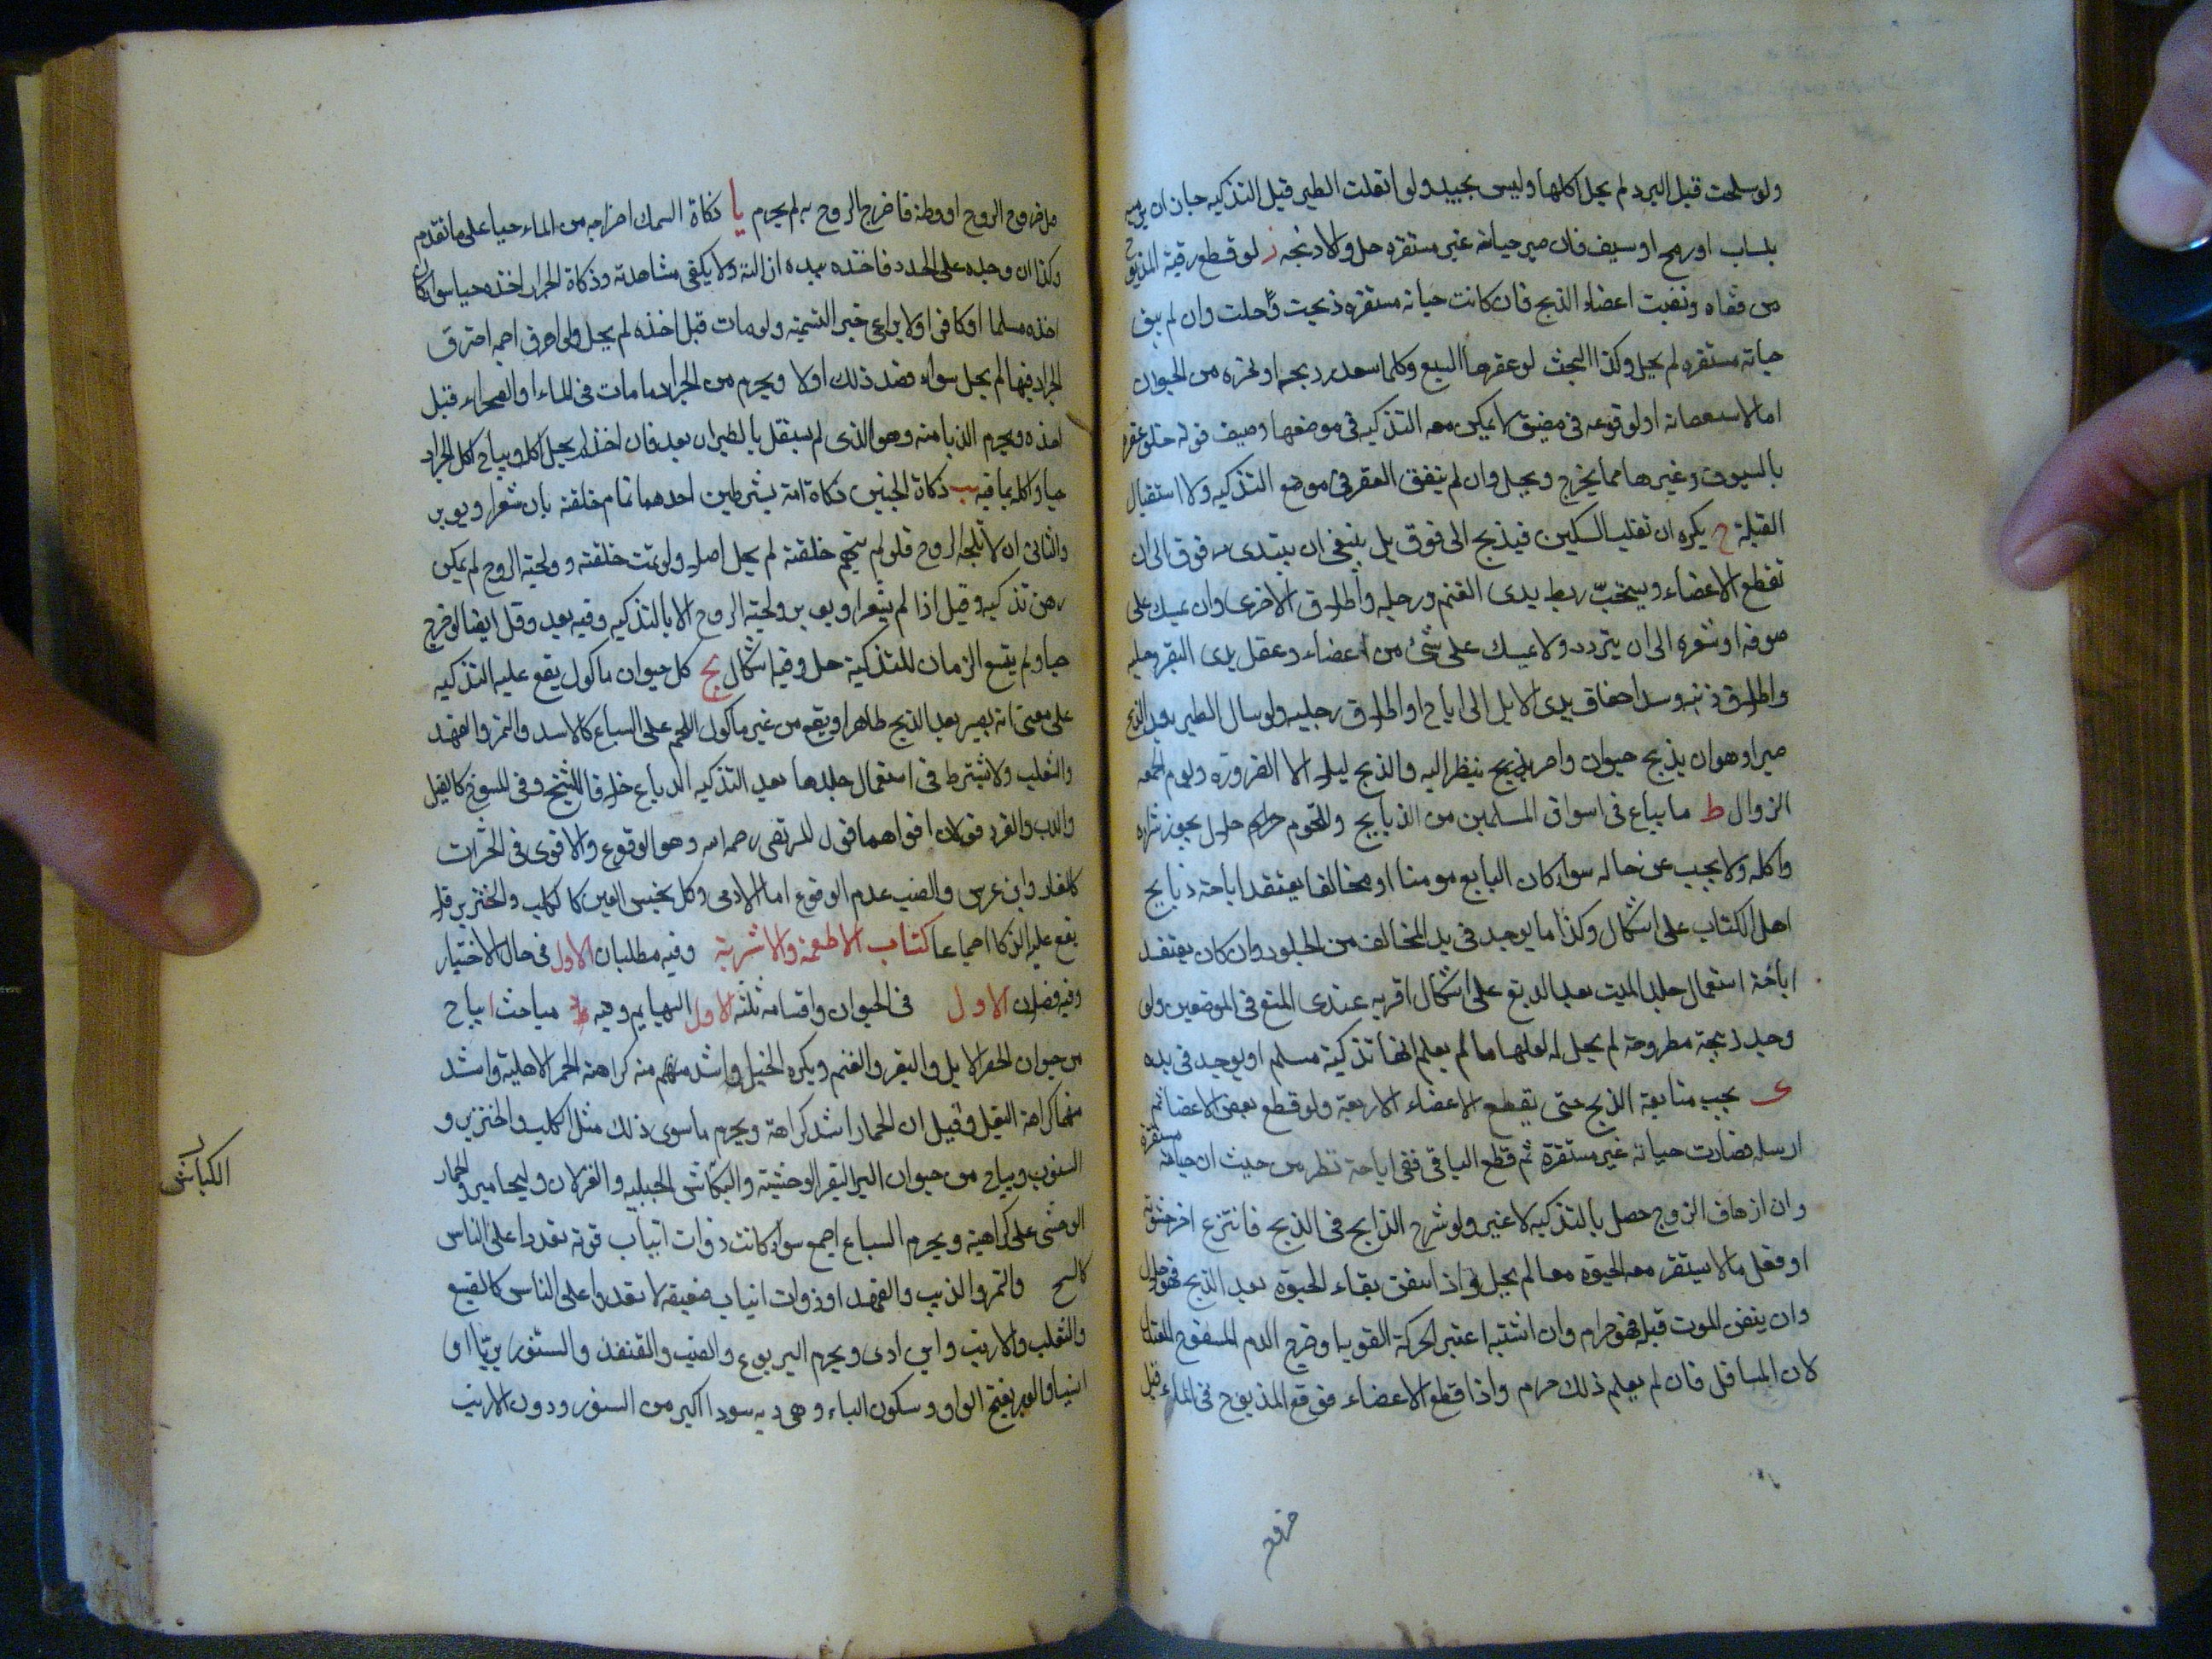 ولو سلخت قبل البرد لم يحل اكلها وليس بجيد ولو انفلت الطير قبل التذكيه جاز ان يرميه
بنشاب او رمح او سيف فان صير حياته غير مستقره حل والا ذبحه ز لو قطع رقبة المذبوح
من قفاه وبقيت اعضاء الذبح فان كانت حياته مستقره ذبحت وحلت وان لم يبق
حياته مستقره لم يحل وكذا البحث لو عقرها السبع وكلما تعذر ذبحه او نحره من الحيوان
اما لاستعصائه او لوقوعه في مضيق لا يمكن معه التذكيه في موضعها وخيف فوته جاز عقره
بالسيوف وغيرها مما يخرج ويحل وان لم يتفق العقر في موضع التذكيه ولا استقبال
القبلة ح يكره ان تقلب السكين فيذبح الى فوق بل ينبغي ان يبتدى من فوق الى ان
تقطع الاعضاء ويستحب ربط يدى الغنم ورجليه واطلاق الاخرى وان يمسك على
صوفه او شعره الى ان يتردد ولا يمسك على شئ من اعضاء وعقل يدى البقر ورجليه
واطلاق ذنبه وشد اخفاف يدى الابل الى اباط واطلاق رجليه وارسال الطير بعد الذبح
صبرا وهو ان يذبح حيوان واخر ينظر اليه والذبح ليلا الا لضروره ويوم الجمعه
الزوال ط ما يباع فى اسواق المسلمين من الذبايح واللحوم حلال يجوز شراه
واكله ولا يجب عن حاله سواء كان البايع مومنا او مخالفا يعتقد اباحة ذبايح
اهل الكتاب على اشكال وكذا ما يوجد فى يد المخالف من الجلود وان كان يعتقد
اباحة استعمال جلد الميت بعد الدبغ على اشكال اقربه عندى المنع فى الموضعين ولو
وجد ذبيحة مطروحة لم يحل له اكلها ما لم يعلم انها تذكية مسلم او يوجد فى يده
ى يجب متابعة الذبح حتى يقطع الاعضاء الاربعة ولو قطع بعض الاعضاء ثم
ارسله فصارت حياته غير مستقرة ثم قطع الباقى ففى اباحة نظر من حيث ان حياته مستقرة
وان ازهاق الروح حصل بالتذكيه لا غير ولو شرع الذابح فى الذبح فانتزع اخر حشوته
او فعل ما لا يستقر معه الحيوة معا لم يحل واذا تيقن بقاء الحيوة بعد الذبح فهو حلال
وان يتقن الموت قبله فهو حرام وان اشتبه اعتبر الحركة القويه او خرج الدم المسفوح المعتدل
لان المتثاقل فان لم يعلم ذلك حرم واذا قطع الاعضاء فوقع المذبوح فى الماء قبل
خروج
قبل خروج الروح او وطئه فاخرج الروح به لم يحرم يا ذكاة السمك اخراجه من الماء حيا على ما تقدم
وكذا ان وجده على الجدد فاخذه بيده او الته ولا يكفى مشاهدته وذكاة الجراد اخذه حيا سواء كان
اخذه مسلما او كافرا ولا يراعى خبر التسمية ولو مات قبل اخذه لم يحل ولو احرق اجمه احترق
الجراد فيها لم يحل سواء قصد ذلك اولا ويحرم من الجراد ما مات فى الماء او الصحراء قبل
اخذه ويحرم الدبا منه وهو الذى لم يستقل بالطيران بعد فان اخذ لم يحل اكله ويباح اكل الجراد
حيا واكله بما فيه يب ذكاة الجنين ذكاة امه بشرطين احدهما تمام خلقته بان شعرا ويوبر
والثانى ان لا تلجه الروح فلو لم يتم خلقته لم يحل اصلا ولو تمت خلقته وولجته الروح لم يكن
من تذكيه وقيل اذا لم يشعر او يوبر ولجته الروح الا بالتذكيه وفيه بعد وقل ايضا لو خرج
حيا ولم يتسع الزمان للتذكية حل وفيه اشكال يج كل حيوان ماكول يقع عليه التذكيه
على معنى انه يصير بعد الذبح طاهرا ويقع من غير ماكول اللحم على السباع كالاسد والنمر والفهد
والثعلب ولا يشترط فى استعمال جلدها بعد التذكيه الدباغ خلافا للشيخ وفى المسوخ كالفيل
والدب والقرد قولان اقواهما قول للمرتضى رحمه الله وهو الوقوع والاقوى فى الحشرات
كالفار وابن عرس والضب عدم الوقوع اما الادمى وكل نجس العين كالكلب والخنزير فلا
يقع عليه الذكاة اجماعا كتاب الاطعمة والاشربة وفيه مطلبان الاول فى حال الاختيار
وفيه فصلان الاول فى الحيوان واقسامه ثلثه الاول البهايم وفيه مباحث ا يباح
من حيوان الحضر الابل والبقر والغنم ويكره الخيل واشد منهم منه كراهة الحمر الاهلية واشد
منهما كراهة البغل وقيل ان الحمار اشد كراهة ويحرم ما سوى ذلك مثل الكلب والخنزير و
السنور ويباح من حيوان البر البقر الوحشية والكباش الجبليه والغزلان واليحامير والحمار
الكباش
الوحشى على كراهية ويحرم السباع اجمع سواء كانت ذوات انياب قوية تعدو على الناس
والنمر والذيب والفهد او ذوات انياب ضعيفه لا تعدو على الناس كالضبع
والثعلب والارنب وابن اوى ويحرم اليربوع والضب والقنفذ والسنور بريا او
انسيا والوبر بفتح الواو وسكون الباء وهى دويبه سودا اكبر من السنور ودون الارنب